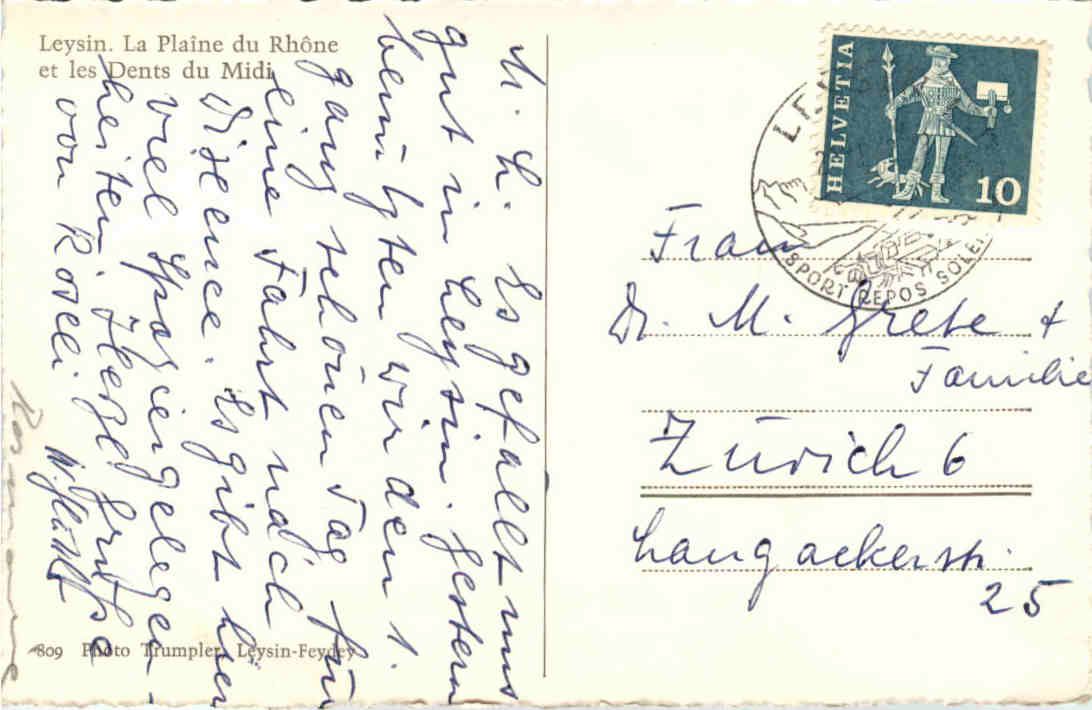 Leysin. La Plaîne du Rhône
et les Dents du Midi
Es gefällt uns
gut in Leysin. Gestern
benützten wir den 1.
ganz schönen Tag für
eine Fahrt nach
Es gibt hier
viel Spaziergelegen-
heiten. Herzl. Grüsse
von Rösli
809 Photo Trumpler, Leysin-Feydey
HELVETIA
10
SPORT REPOS SOLEI
Frau
Dr. M. Grete +
Familie
Zürich 6
Langackerstr.
25